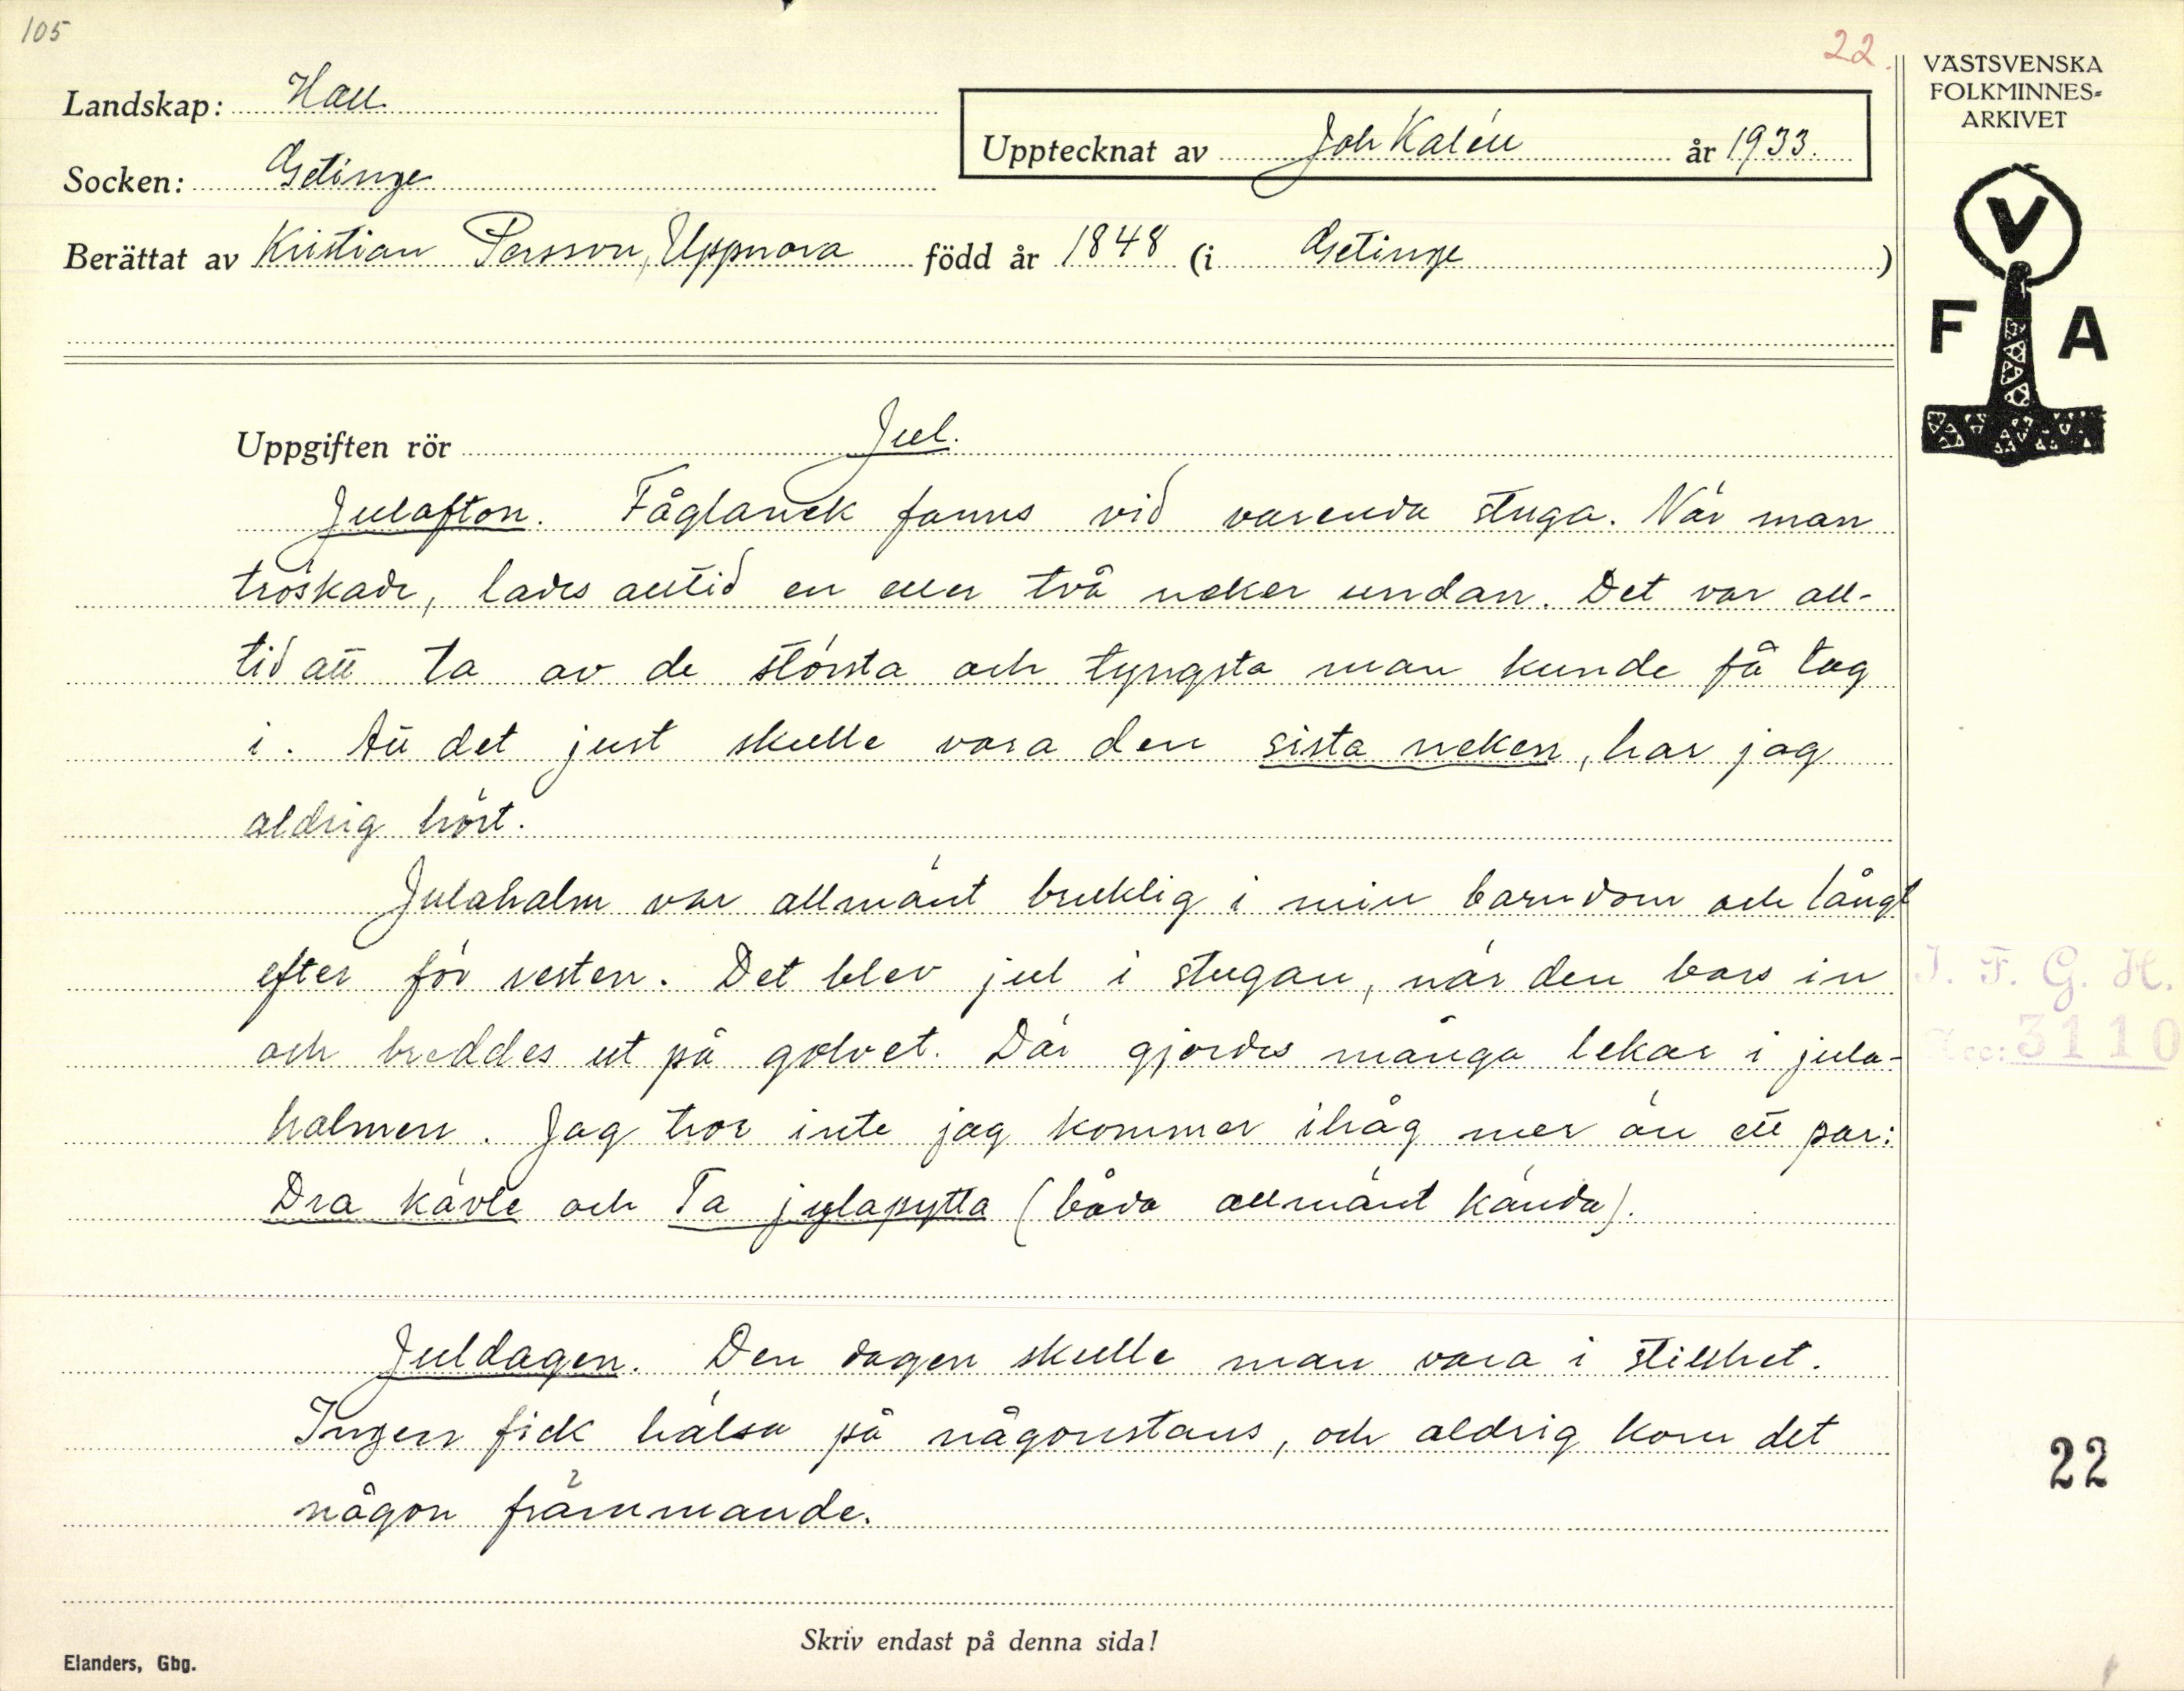 105
22.
VÄSTSVENSKA
FOLKMINNES-
ARKIVET
Landskap: Hall.
Upptecknat av Joh Kalén år 1933.
Socken: Getinge
Berättat av Kristian Persson, Uppnora född år 1848 (i Getinge )
V
F A
Uppgiften rör Jul.
Julafton. Fåglanek fanns vid varenda stuga. När man
tröskade, lades alltid en eller två neker undan. Det var all-
tid att ta av de största och tyngsta man kunde få tag
i. Att det just skulle vara den sista neken, har jag
aldrig hört.
Julahalm var allmänt bruklig i min barndom och långt
efter för resten. Det blev jul i stugan, när den bars in
och breddes ut på golvet. Där gjordes många lekar i jula-
halmen. Jag tror inte jag kommer ihåg mer än ett par:
Dra kävle och Ta jylapytta (båda allmänt kända).
I. F. G. H.
Acc: 3110
Juldagen. Den dagen skulle man vara i stillhet.
Ingen fick hälsa på någonstans, och aldrig kom det
någon främmande.
22
Skriv endast på denna sida!
Elanders, Gbg.